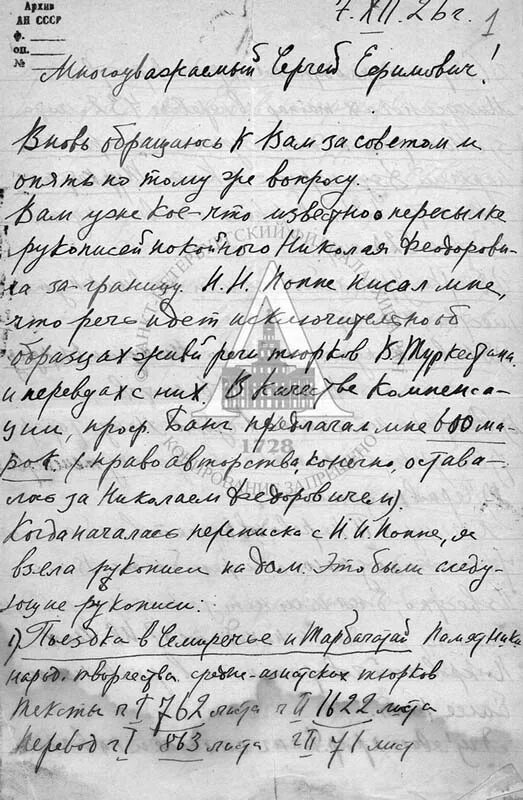 Архив
АН СССР
ф.
оп.
№
7.XII.26г.
1
Многоуважаемый Сергей Ефимович!
Вновь обращаюсь к Вам за советом и
опять по тому же вопросу.
Вам уже кое-что известно о пересылке
рукописей покойного Николая Феодорови-
ча за-границу. Н.Н. Поппе писал мне,
что речь идет исключительно об
образцах живой речи тюрков В. Туркестана
и переводах с них. В качестве компенса-
ции, проф. Банг предлагал мне 600 ма-
рок (право авторства, конечно, остава-
лось за Николаем Федоровичем).
Когда началась переписка с Н.Н. Поппе, я
взяла рукописи на дом. Это были следу-
ющие рукописи:
1) Поездка в Семиречье и Тарбагатай Памятника
народ. творчества средне-азиатских тюрков
Тексты ч I 762 листа ч II 1622 листа
Перевод ч I 863 листа ч II 71 лист
САНКТ-ПЕТЕРБУРГСКИЙ ФИЛИАЛ АРХИВА
1728
КОПИРОВАНИЕ ЗАПРЕЩЕНО